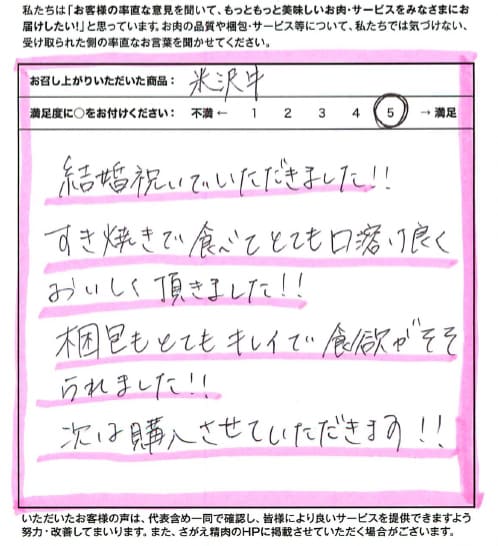 私たちは「お客様の率直な意見を聞いて、もっともっと美味しいお肉・サービスをみなさまにお
届けしたい!」と思っています。お肉の品質や梱包・サービス等について、私たちでは気づけない、
受け取られた側の率直なお言葉を聞かせてください。
お召し上がりいただいた商品： 米沢牛
満足度に○をお付けください： 不満 ← 1 2 3 4 5 → 満足
結婚祝いでいただきました!!
すき焼きで食べてとても口溶け良く
おいしく頂きました!!
梱包もとてもキレイで食欲がそそ
られました!!
次は購入させていただきます!!
いただいたお客様の声は、代表含め一同で確認し、皆様により良いサービスを提供できますよう
努力・改善してまいります。また、さがえ精肉のHPに掲載させていただく場合がございます。